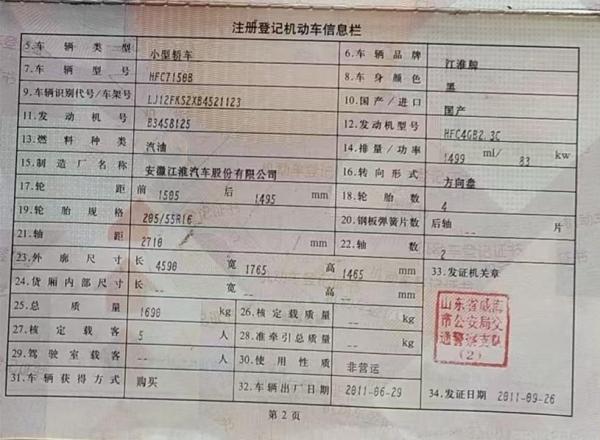 注册登记机动车信息栏
5.车辆类型 小型轿车 6.车辆品牌 江淮牌
7.车辆型号 HFC7150B 8.车身颜色 黑
9.车辆识别代号/车架号 LJ12FKS2XB4521123 10.国产/进口 国产
11.发动机号 B3458125 12.发动机型号 HFC4GB2.3C
13.燃料种类 汽油 14.排量/功率 1499 ml/ 83 kw
15.制造厂名称 安徽江淮汽车股份有限公司 16.转向形式 方向盘
17.轮距 前 1505 后 1495 mm 18.轮胎数 4
19.轮胎规格 205/55R16 20.钢板弹簧片数 后轴 -- 片
21.轴距 2710 / mm 22.轴数 2
23.外廓尺寸 长 4590 宽 1765 高 1465 mm 33.发证机关章
24.货厢内部尺寸 长 -- 宽 -- 高 -- mm
25.总质量 1690 kg 26.核定载质量 -- kg
山东省威海
市公安局交
通警察支队
(2)
27.核定载客 5 人 28.准牵引总质量 -- kg
29.驾驶室载客 -- 人 30.使用性质 非营运
31.车辆获得方式 购买 32.车辆出厂日期 2011-06-29 34.发证日期 2011-09-26
第2页